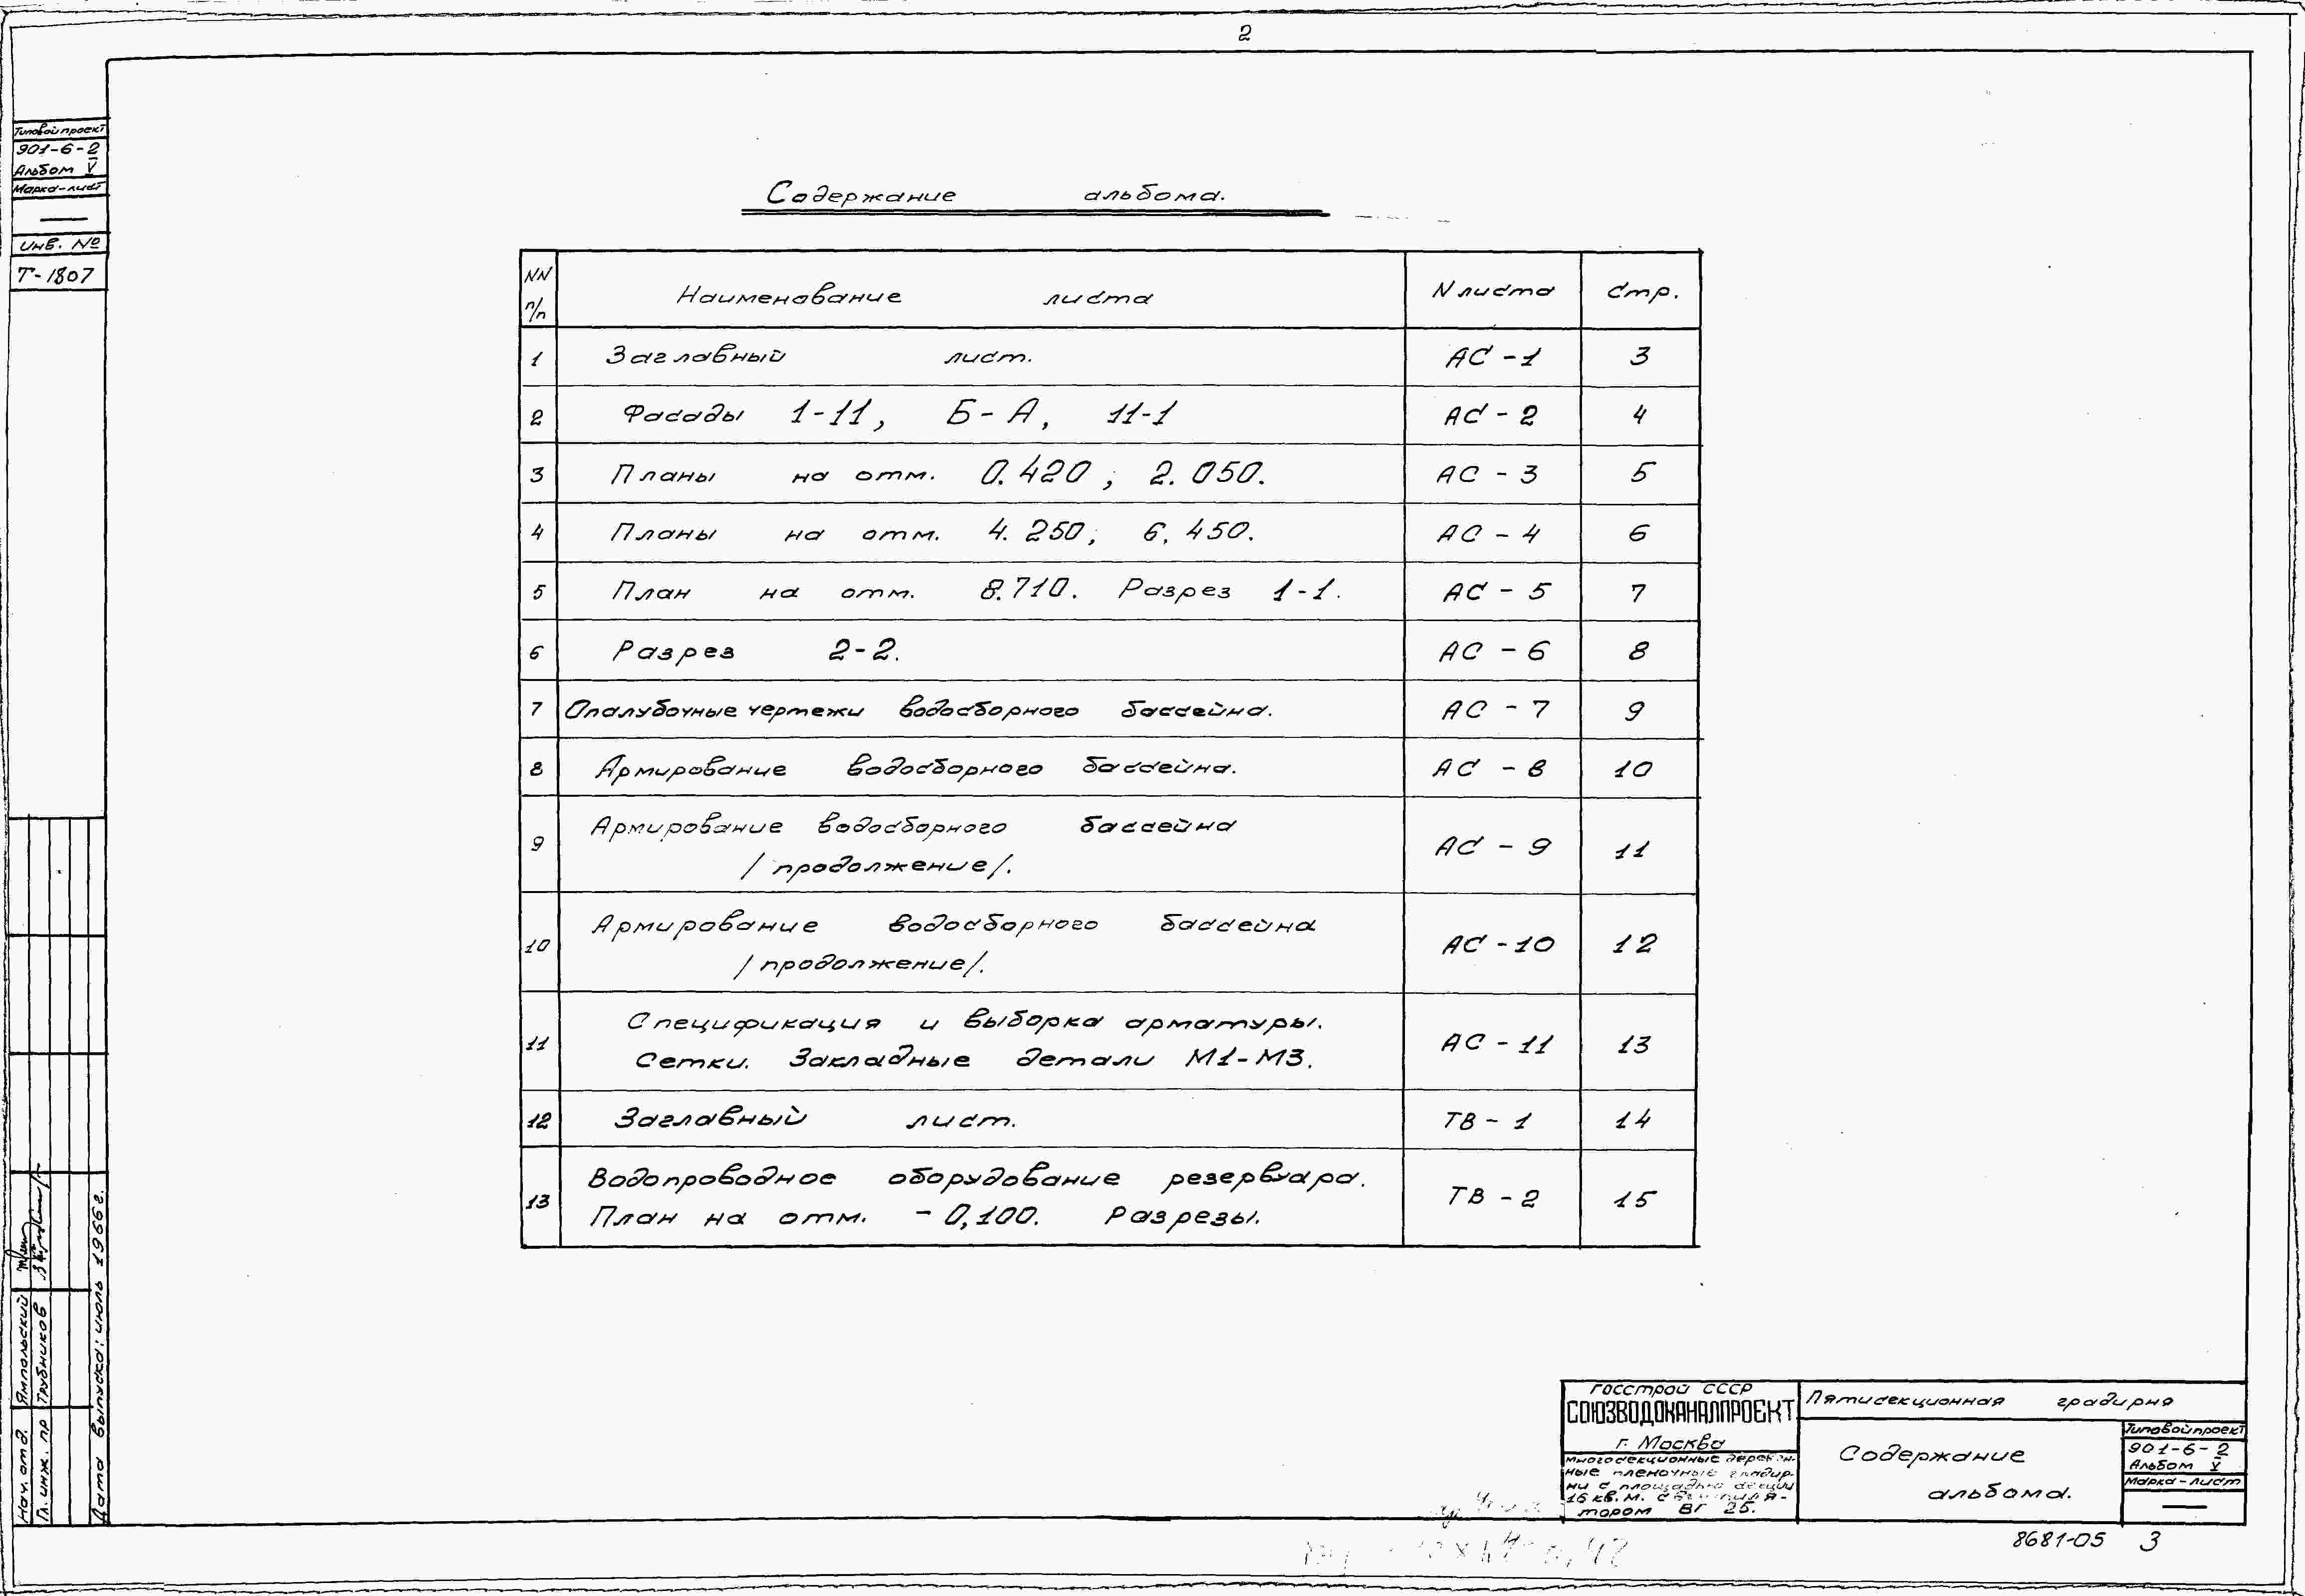 2
Типовой проект
901-6-2
Альбом V
Марка-лист
—
Инв. №
Т-1807
Содержание альбома.
NN п/п Наименование листа N листа Стр.
1 Заглавный лист. АС-1 3
2 Фасады 1-11, Б-А, 11-1 АС-2 4
3 Планы на отм. 0.420; 2.050. АС-3 5
4 Планы на отм. 4.250; 6.450. АС-4 6
5 План на отм. 8.710. Разрез 1-1. АС-5 7
6 Разрез 2-2. АС-6 8
7 Опалубочные чертежи водосборного бассейна. АС-7 9
8 Армирование водосборного бассейна. АС-8 10
9 Армирование водосборного бассейна
/продолжение/. АС-9 11
10 Армирование водосборного бассейна
/продолжение/. АС-10 12
11 Спецификация и выборка арматуры.
Сетки. Закладные детали М1-М3. АС-11 13
12 Заглавный лист. ТВ-1 14
13 Водопроводное оборудование резервуара.
План на отм. -0,100. Разрезы. ТВ-2 15
Нач. отд. Ямпольский
Гл. инж. пр Трубников
Дата выпуска: июль 1966 г.
Госстрой СССР
СОЮЗВОДОКАНАЛПРОЕКТ
г. Москва
Многосекционные деревян-
ные пленочные градир-
ни с площадью секции
16 кв.м. с вентиля-
тором ВГ 25.
Пятисекционная градирня
Содержание
альбома.
Типовой проект
901-6-2
Альбом V
Марка-лист
—
8681-05 3